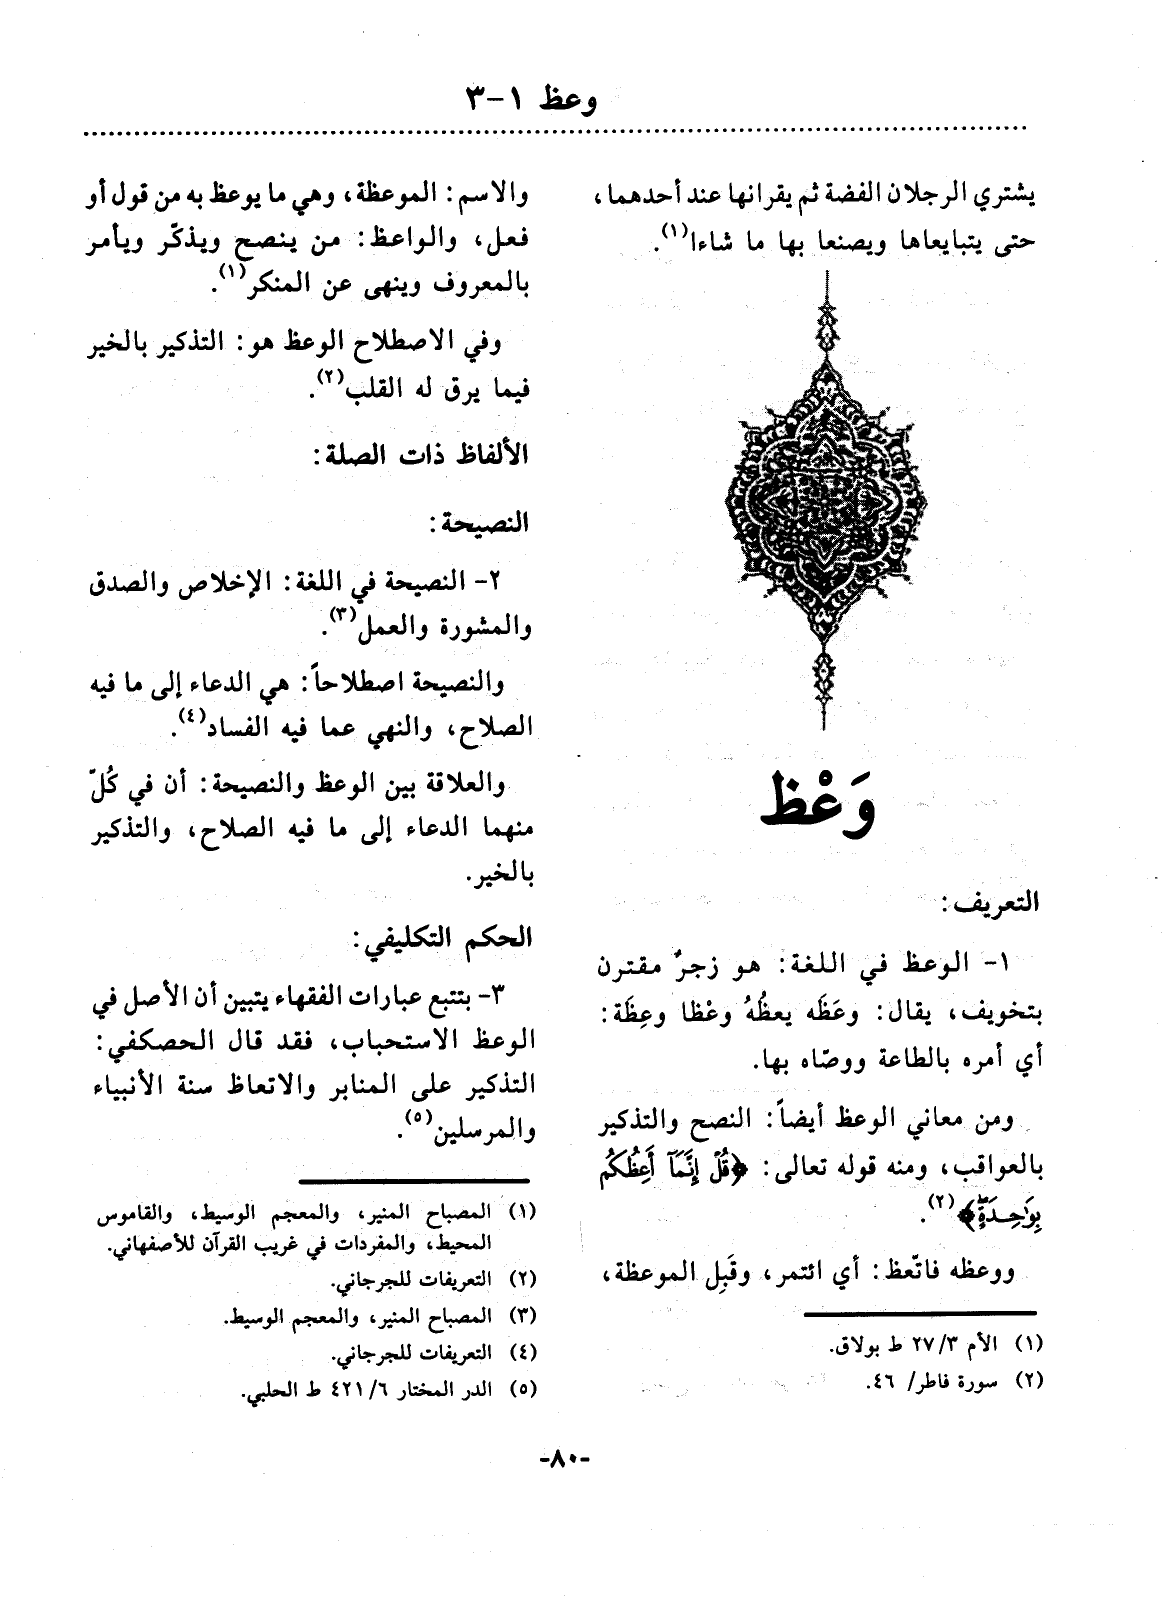 وعظ ١-٣
يشتري الرجلان الفضة ثم يقرانها عند أحدهما،
حتى يتبايعاها ويصنعا بها ما شاءا(١).
وَعْظ
التعريف:
١- الوعظ في اللغة: هو زجرٌ مقترن
بتخويف، يقال: وعَظَه يعظُهُ وعْظا وعِظَة:
أي أمره بالطاعة ووصّاه بها.
ومن معاني الوعظ أيضاً: النصح والتذكير
بالعواقب، ومنه قوله تعالى: ﴿قُلْ إِنَّمَآ أَعِظُكُم
بِوَٰحِدَةٍۖ﴾(٢).
ووعظه فاتّعظ: أي ائتمر، وقَبِل الموعظة،
(١) الأم ٢٧/٣ ط بولاق.
(٢) سورة فاطر/ ٤٦.
والاسم: الموعظة، وهي ما يوعظ به من قول أو
فعل، والواعظ: من ينصح ويذكّر ويأمر
بالمعروف وينهى عن المنكر(١).
وفي الاصطلاح الوعظ هو: التذكير بالخير
فيما يرق له القلب(٢).
الألفاظ ذات الصلة:
النصيحة:
٢- النصيحة في اللغة: الإخلاص والصدق
والمشورة والعمل(٣).
والنصيحة اصطلاحاً: هي الدعاء إلى ما فيه
الصلاح، والنهي عما فيه الفساد(٤).
والعلاقة بين الوعظ والنصيحة: أن في كُلّ
منهما الدعاء إلى ما فيه الصلاح، والتذكير
بالخير.
الحكم التكليفي:
٣- بتتبع عبارات الفقهاء يتبين أن الأصل في
الوعظ الاستحباب، فقد قال الحصكفي:
التذكير على المنابر والاتعاظ سنة الأنبياء
والمرسلين(٥).
(١) المصباح المنير، والمعجم الوسيط، والقاموس
المحيط، والمفردات في غريب القرآن للأصفهاني.
(٢) التعريفات للجرجاني.
(٣) المصباح المنير، والمعجم الوسيط.
(٤) التعريفات للجرجاني.
(٥) الدر المختار ٤٢١/٦ ط الحلبي.
-٨٠-